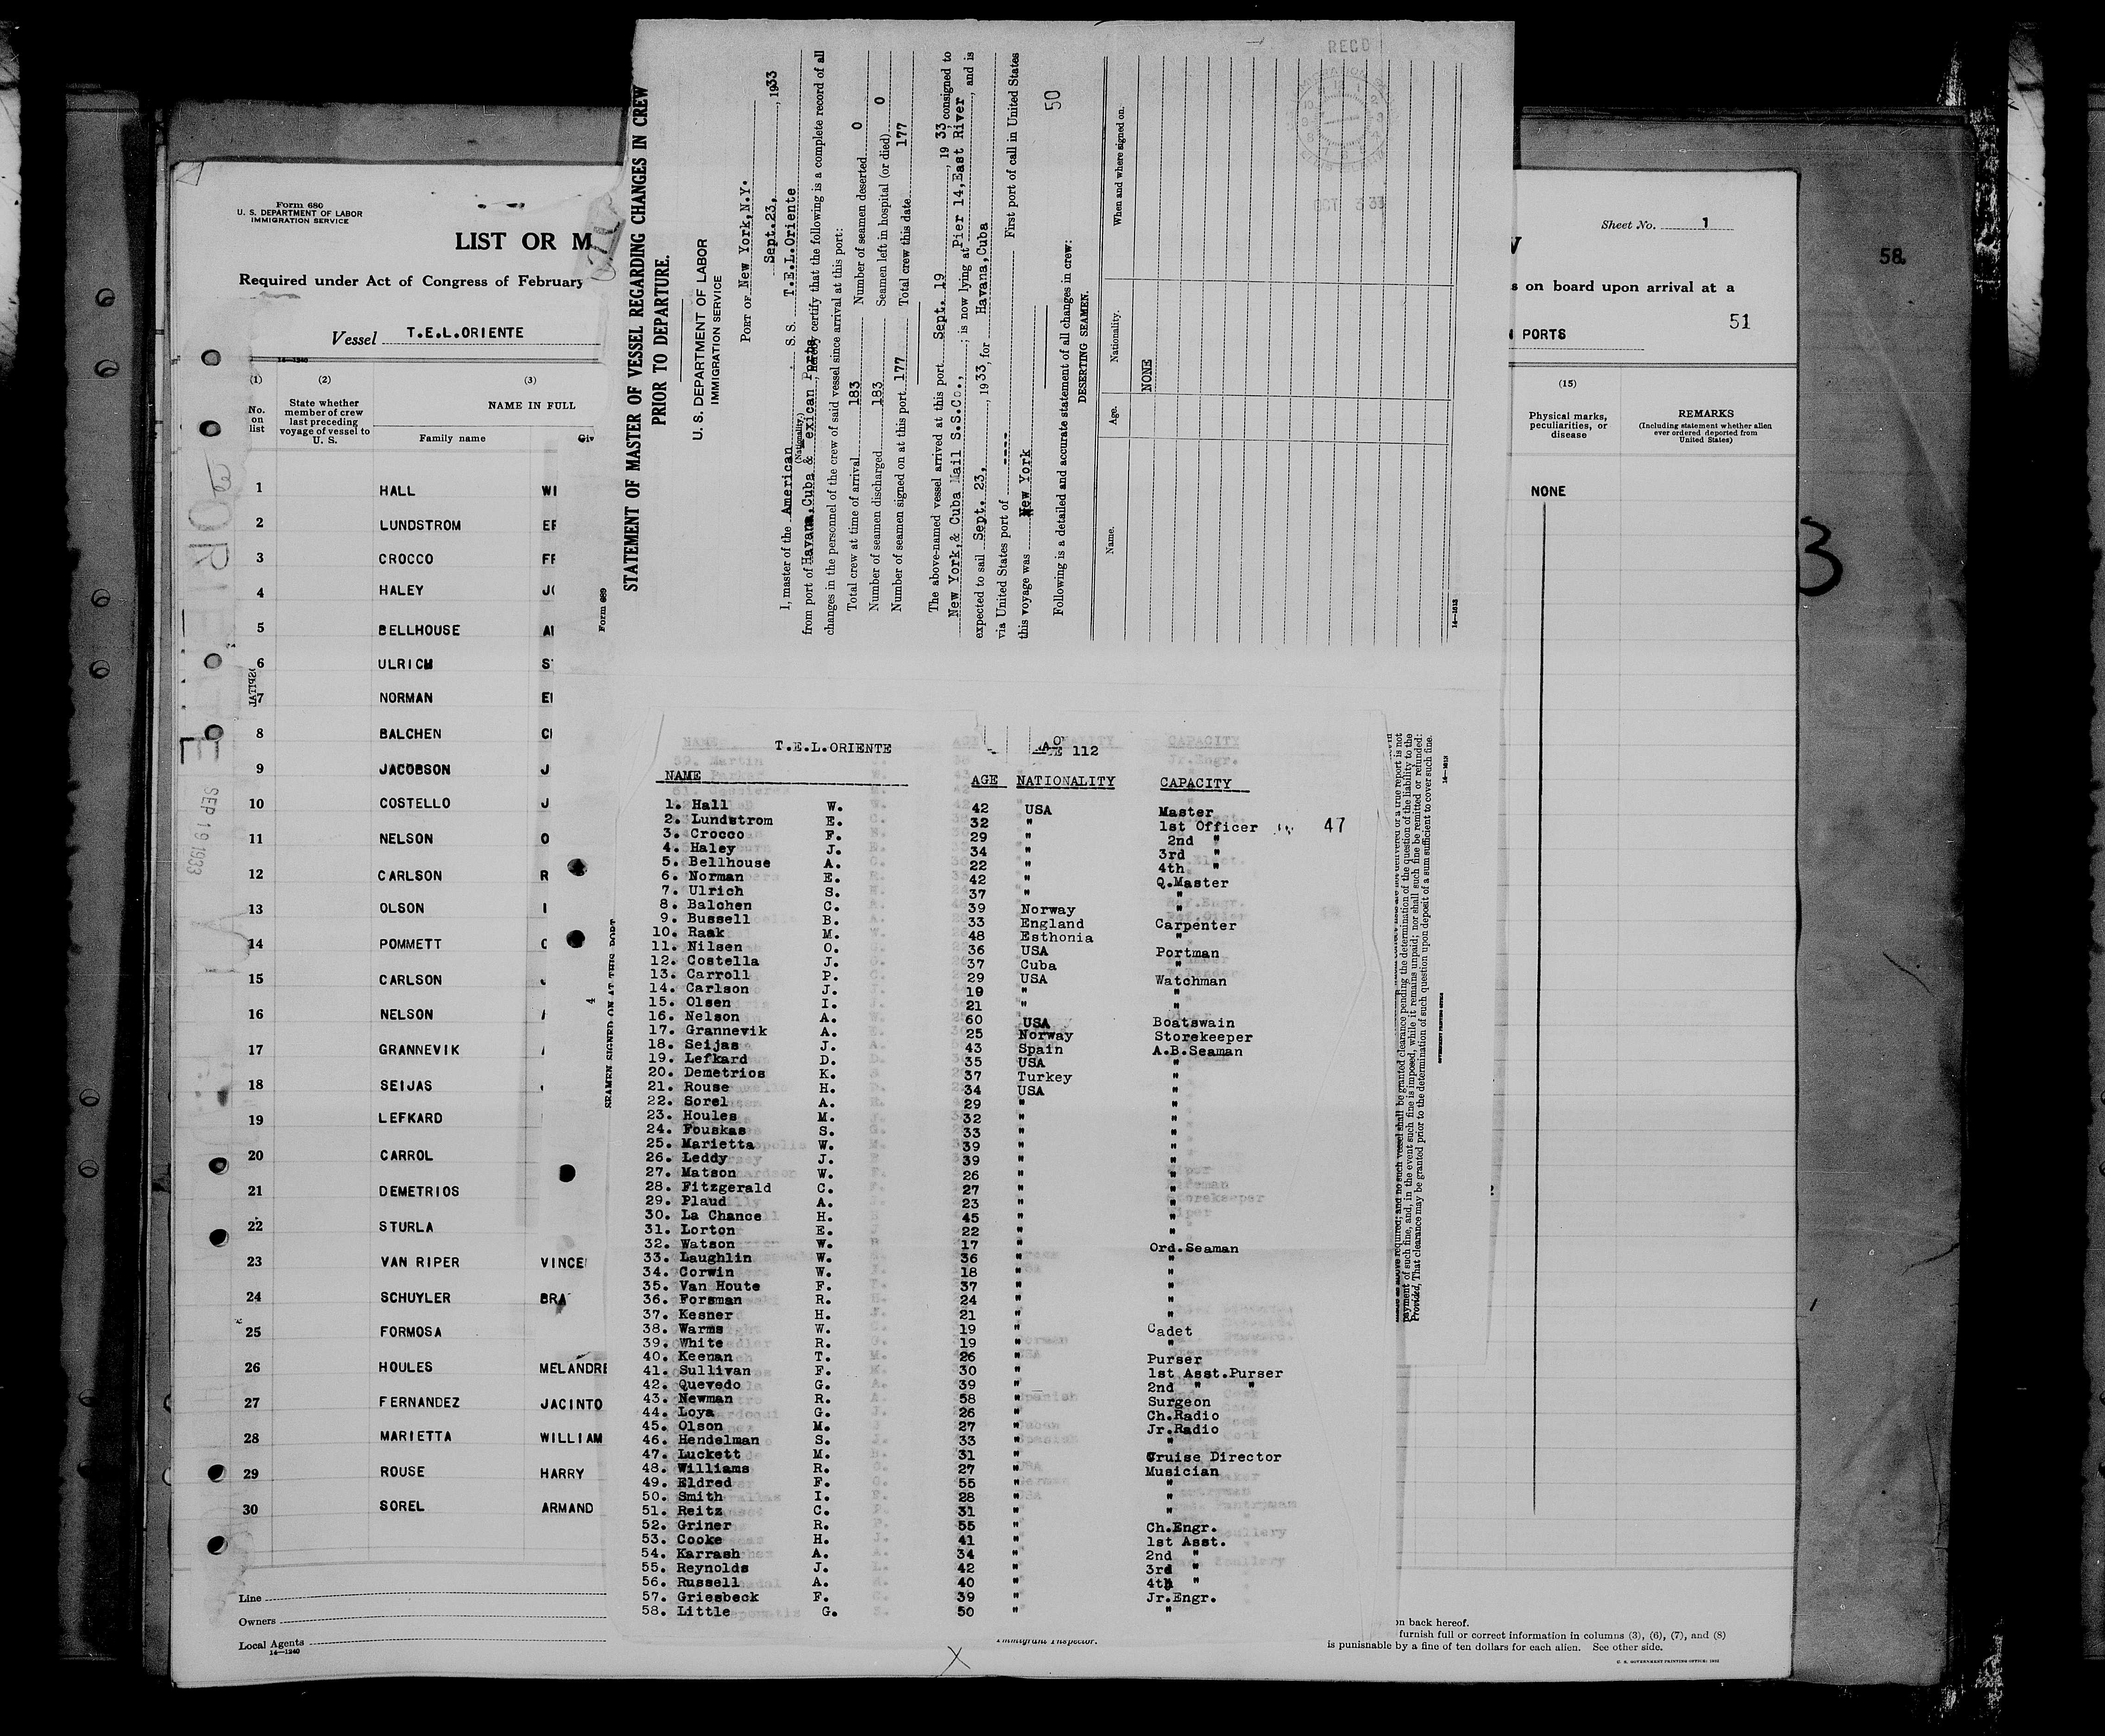 Form 680
U. S. DEPARTMENT OF LABOR
IMMIGRATION SERVICE
LIST OR M
Required under Act of Congress of February
Vessel T.E.L.ORIENTE
14—1240
(1) (2) (3)
No. on list
State whether member of crew last preceding voyage of vessel to U. S.
NAME IN FULL
Family name Giv
1 HALL WI
2 LUNDSTROM
3 CROCCO
4 HALEY
5 BELLHOUSE
6 ULRICH
7 NORMAN
8 BALCHEN
9 JACOBSON J
10 COSTELLO J
11 NELSON O
12 CARLSON R
13 OLSON
14 POMMETT
15 CARLSON
16 NELSON
17 GRANNEVIK
18 SEIJAS
19 LEFKARD
20 CARROL
21 DEMETRIOS
22 STURLA
23 VAN RIPER VINCE
24 SCHUYLER BRA
25 FORMOSA
26 HOULES MELANDRE
27 FERNANDEZ JACINTO
28 MARIETTA WILLIAM
29 ROUSE HARRY
30 SOREL ARMAND
Line
Owners
Local Agents
14—1240
ORIENTE
SEP 19 1933
Form 689
STATEMENT OF MASTER OF VESSEL REGARDING CHANGES IN CREW
PRIOR TO DEPARTURE.
U. S. DEPARTMENT OF LABOR
IMMIGRATION SERVICE
PORT OF New York,N.Y.
Sept.23, , 1933
I, master of the American S. S. T.E.L.Oriente
(Nationality.)
from port of Havana,Cuba & Mexican Ports, hereby certify that the following is a complete record of all
changes in the personnel of the crew of said vessel since arrival at this port:
Total crew at time of arrival 183 Number of seamen deserted 0
Number of seamen discharged 183 Seamen left in hospital (or died) 0
Number of seamen signed on at this port 177 Total crew this date 177
The above-named vessel arrived at this port Sept. 19 , 19 33, consigned to
New York,& Cuba Mail S.S.Co., ; is now lying at Pier 14,East River , and is
expected to sail Sept. 23, , 1933, for Havana,Cuba
via United States port of ---- First port of call in United States
this voyage was New York
50
Following is a detailed and accurate statement of all changes in crew:
DESERTING SEAMEN.
Name. Age. Nationality. When and where signed on.
NONE
14—1013
RECD
OCT 3 33
SEAMEN SIGNED ON AT THIS PORT
4
T.E.L.ORIENTE 112
NAME AGE NATIONALITY CAPACITY
1. Hall W. 42 USA Master
2. Lundstrom E. 32 " 1st Officer 47
3. Crocco F. 29 " 2nd "
4. Haley J. 34 " 3rd "
5. Bellhouse A. 22 " 4th "
6. Norman E. 42 " Q.Master
7. Ulrich S. 37 " "
8. Balchen C. 39 Norway "
9. Bussell B. 33 England Carpenter
10. Raak M. 48 Esthonia "
11. Nilsen O. 36 USA Portman
12. Costella J. 37 Cuba "
13. Carroll P. 29 USA Watchman
14. Carlson J. 19 " "
15. Olsen I. 21 " "
16. Nelson A. 60 USA Boatswain
17. Grannevik A. 25 Norway Storekeeper
18. Seijas J. 43 Spain A.B.Seaman
19. Lefkard D. 35 USA "
20. Demetrios K. 37 Turkey "
21. Rouse H. 34 USA "
22. Sorel A. 29 " "
23. Houles M. 32 " "
24. Fouskas S. 33 " "
25. Marietta W. 39 " "
26. Leddy J. 39 " "
27. Matson W. 26 " "
28. Fitzgerald C. 27 " "
29. Plaud A. 23 " "
30. La Chance H. 45 " "
31. Lorton E. 22 " "
32. Watson W. 17 " Ord.Seaman
33. Laughlin W. 36 " "
34. Corwin W. 18 " "
35. Van Houte F. 37 " "
36. Forsman R. 24 " "
37. Kesner H. 21 " "
38. Warms W. 19 " Cadet
39. White R. 19 " "
40. Keenan T. 26 " Purser
41. Sullivan F. 30 " 1st Asst.Purser
42. Quevedo G. 39 " 2nd " "
43. Newman R. 58 " Surgeon
44. Loya G. 26 " Ch.Radio
45. Olson M. 27 " Jr.Radio
46. Hendelman S. 33 " "
47. Luckett M. 31 " Cruise Director
48. Williams R. 27 " Musician
49. Eldred F. 55 " "
50. Smith I. 28 " "
51. Reitz C. 31 " "
52. Griner R. 55 " Ch.Engr.
53. Cooke H. 41 " 1st Asst.
54. Karrash A. 34 " 2nd "
55. Reynolds J. 42 " 3rd "
56. Russell A. 40 " 4th "
57. Griesbeck F. 39 " Jr.Engr.
58. Little G. 50 " "
Immigrant Inspector.
payment of such fine, and, in the event such fine is imposed, while it remains unpaid; nor shall such fine be remitted or refunded:
Provided, That clearance may be granted prior to the determination of such question upon deposit of a sum sufficient to cover such fine.
Sheet No. 1
58.
s on board upon arrival at a
51
PORTS
(15)
Physical marks, peculiarities, or disease
REMARKS
(Including statement whether alien ever ordered deported from United States)
NONE
3
on back hereof.
furnish full or correct information in columns (3), (6), (7), and (8)
is punishable by a fine of ten dollars for each alien. See other side.
U. S. GOVERNMENT PRINTING OFFICE: 1932